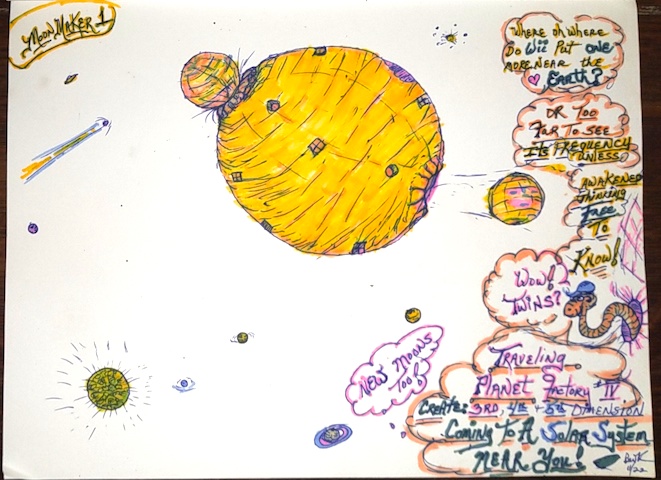 MOON MAKER 1
WHERE OH WHERE
DO Wii PUT ONE
MORE NEAR THE
EARTH?
OR TOO
FAR TO SEE
ITS FREQUENCY
AWAKENED
THINKING
FREE
TO
KNOW!
WOW!
TWINS?
NEW MOONS
TOO!
TRAVELING
PLANET FACTORY #IV
CREATE: 3RD, 4TH + 5TH DIMENSION
COMING TO A SOLAR SYSTEM
NEAR YOU!
11/22